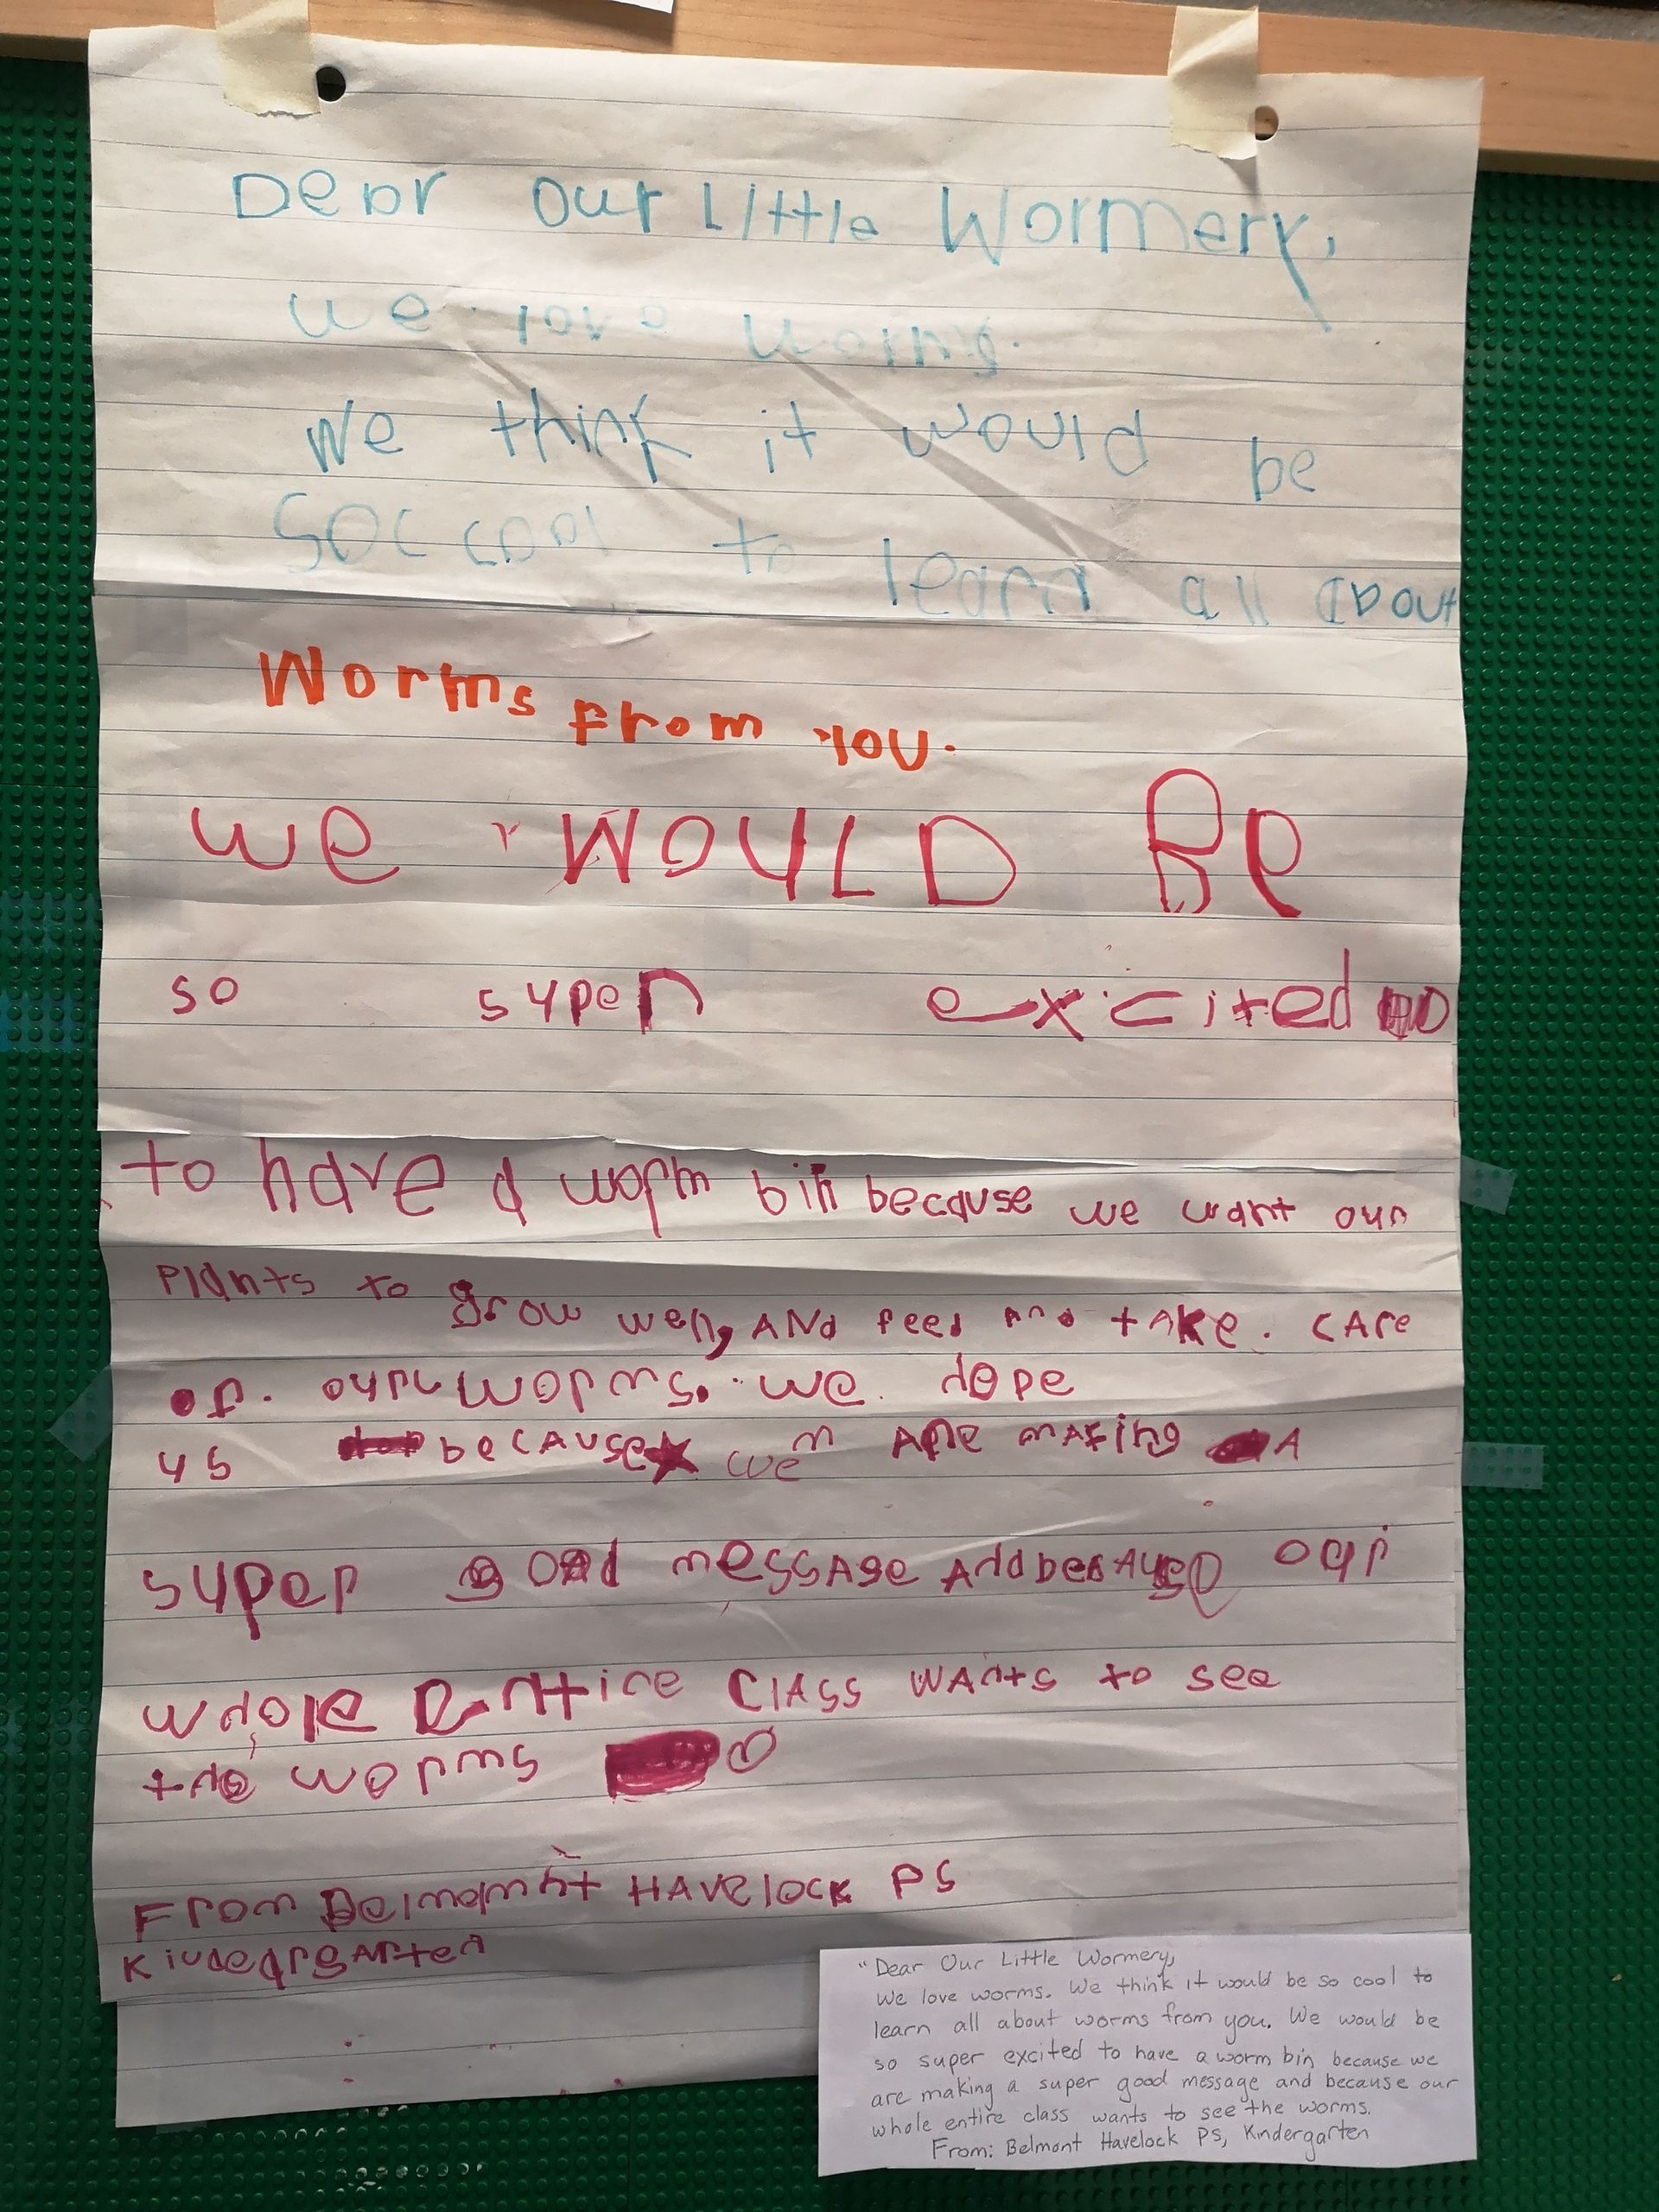 Dear Our Little Wormery,
we love worms.
We think it would be
SOC cool to learn all about
Worms From YOU.
we WOULD Be
so super excited
to have a worm bin because we want our
Plants to grow well, ANd feed and tAKe. CAre
of. our worms. we hope
us becAuse we Are mAking A
super good messAge And becAuse our
whole entire CLASS WANts to see
the worms
From Belmont HAVelock PS
KindergArten
"Dear Our Little Wormery,
We love worms. We think it would be so cool to
learn all about worms from you. We would be
so super excited to have a worm bin because we
are making a super good message and because our
whole entire class wants to see the worms.
From: Belmont Havelock PS, Kindergarten